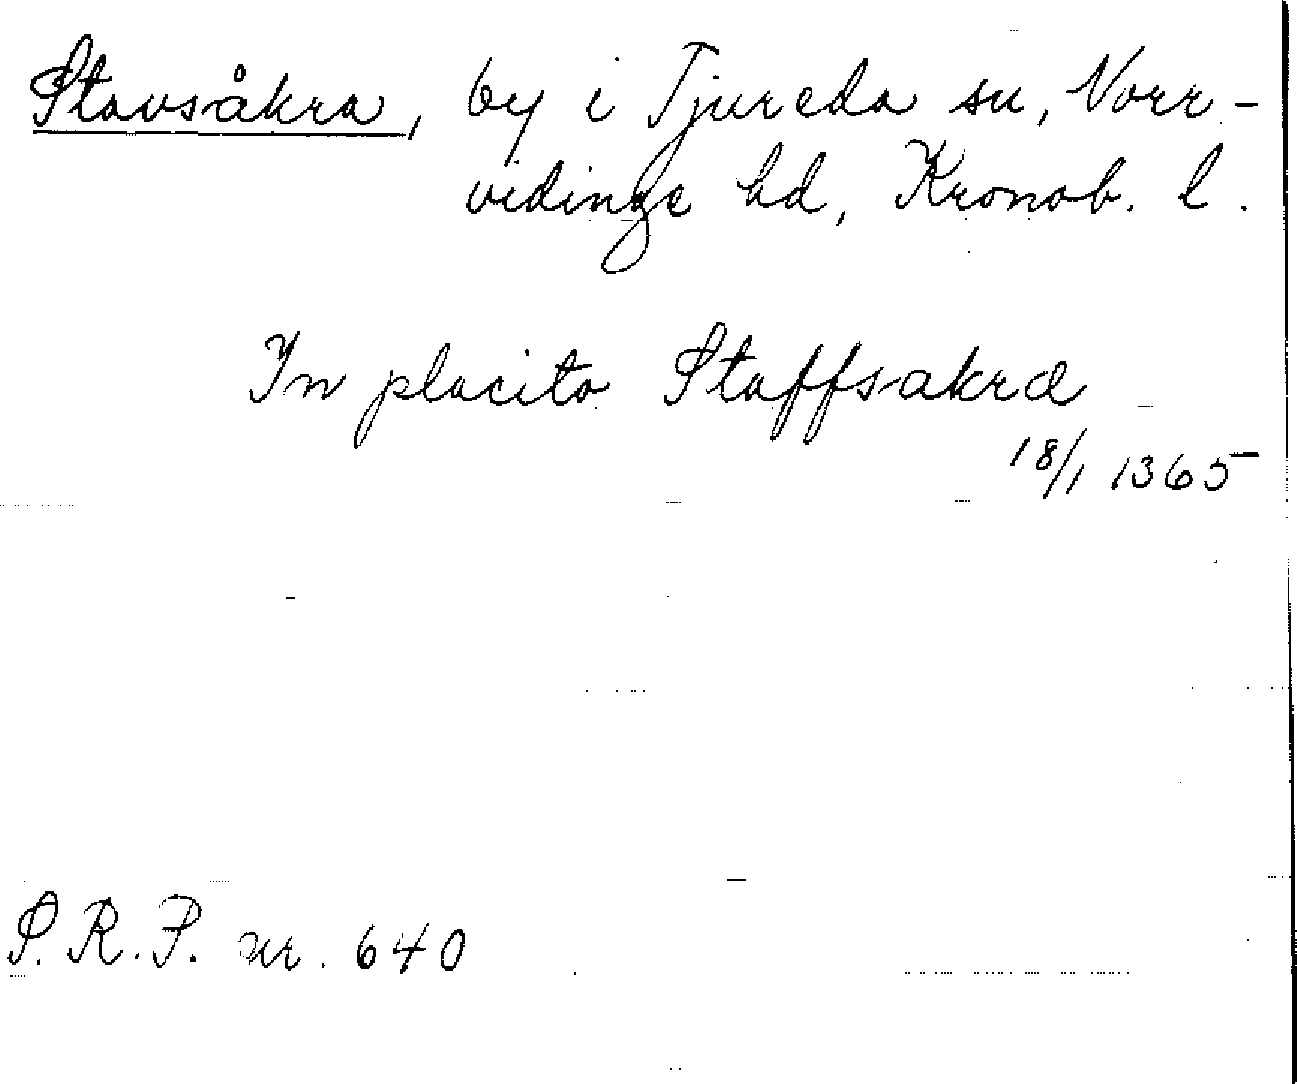 Stavsåkra, by i Tjureda sn, Norr-
vidinge hd, Kronob. l.
In placito Staffsakræ
18/1 1365
S.R.P. nr. 640